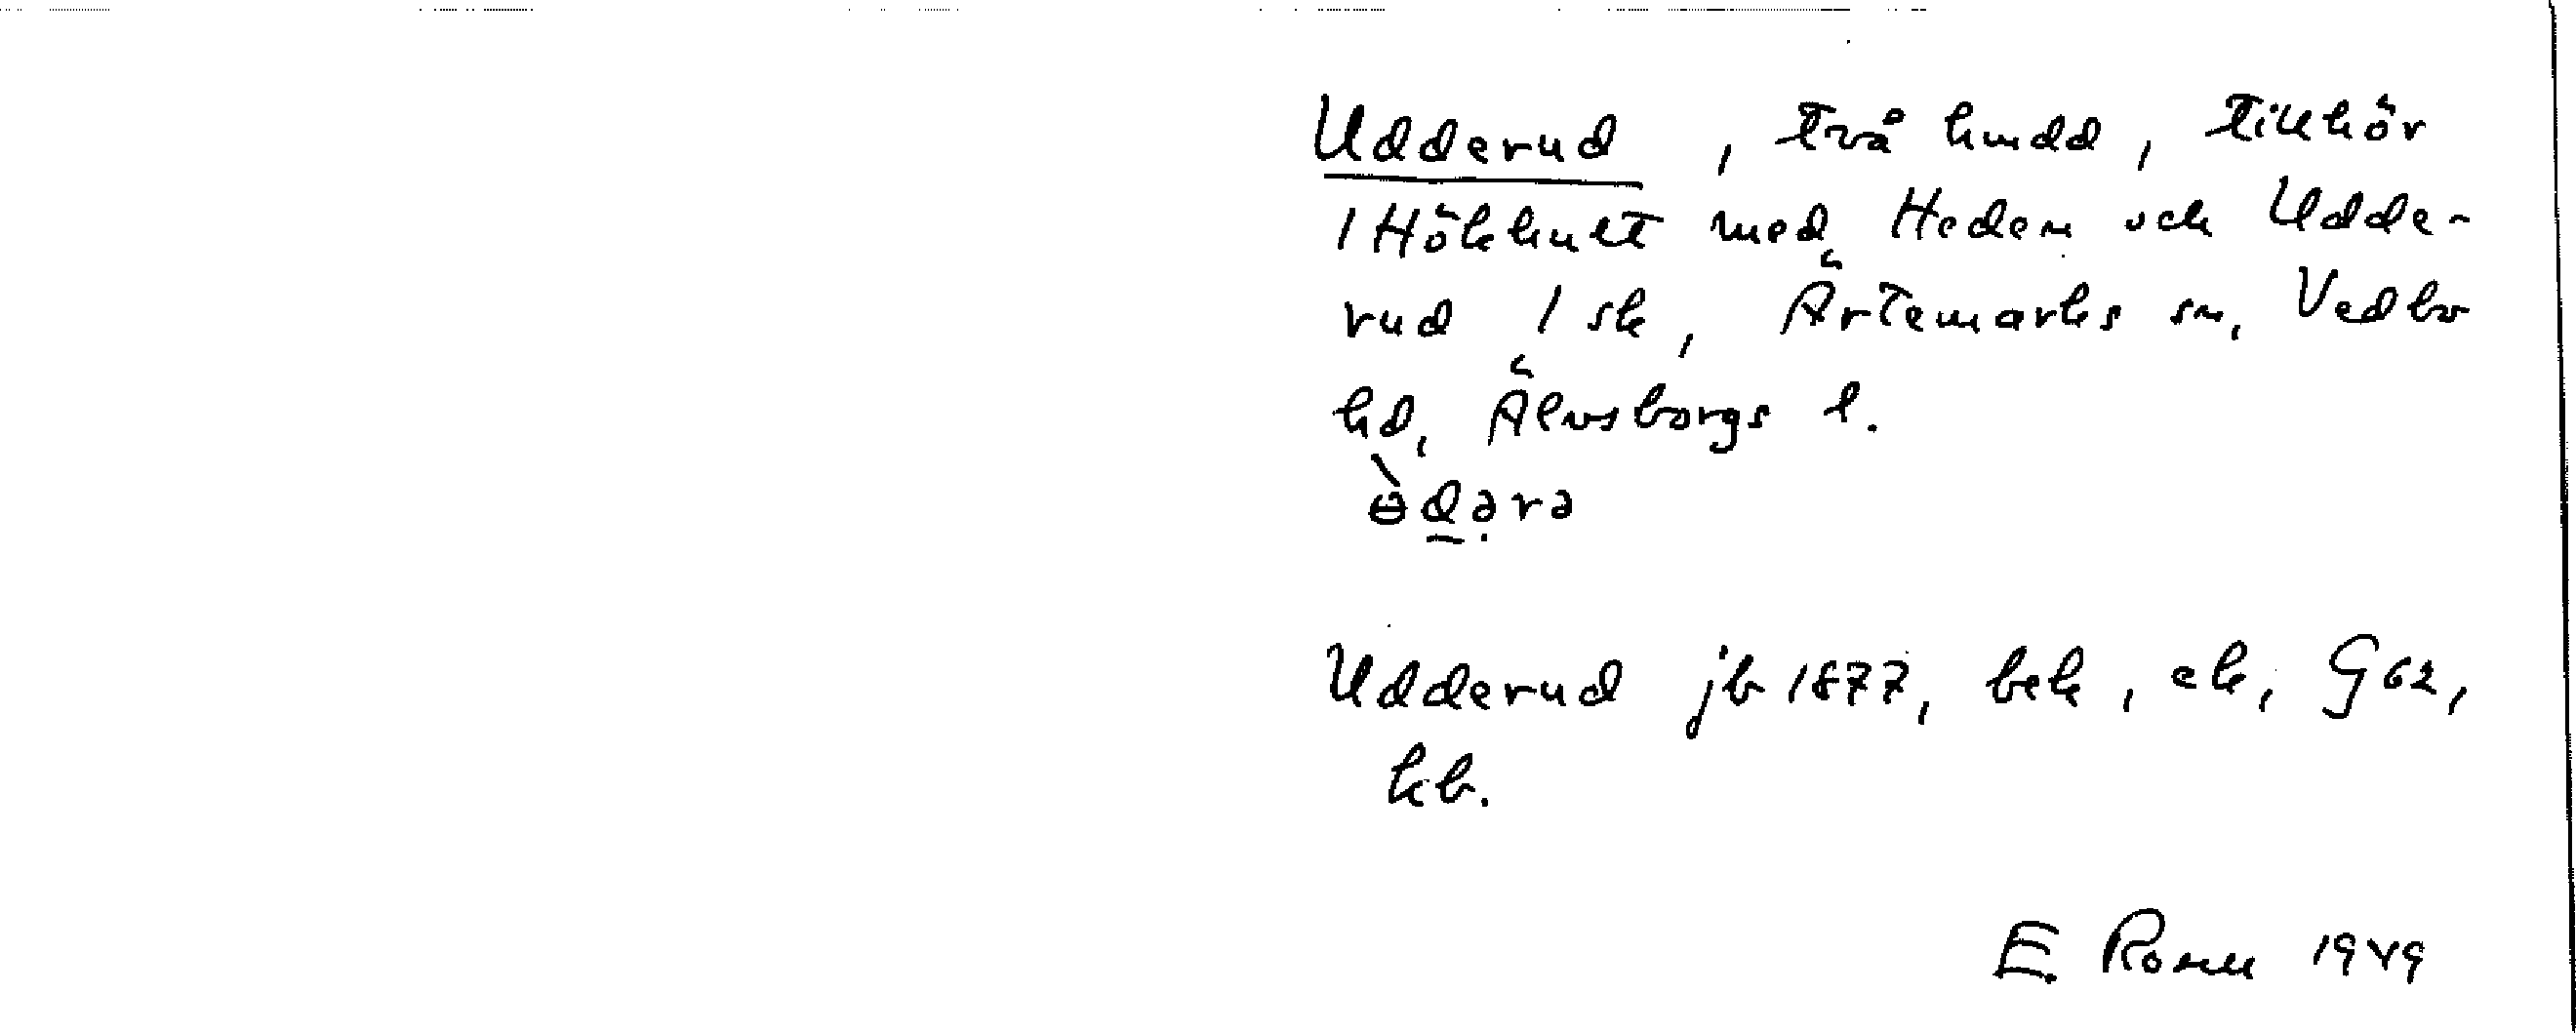 Udderud, två hmdd, tillhör
1 Hökhult med Heden och Udde-
rud 1 sk, Ärtemarks sn, Vedbo
hd, Älvsborgs l.
ɵ̀d̲ərə
Udderud jb 1877, bek, ek, G62,
kb.
E. 1949